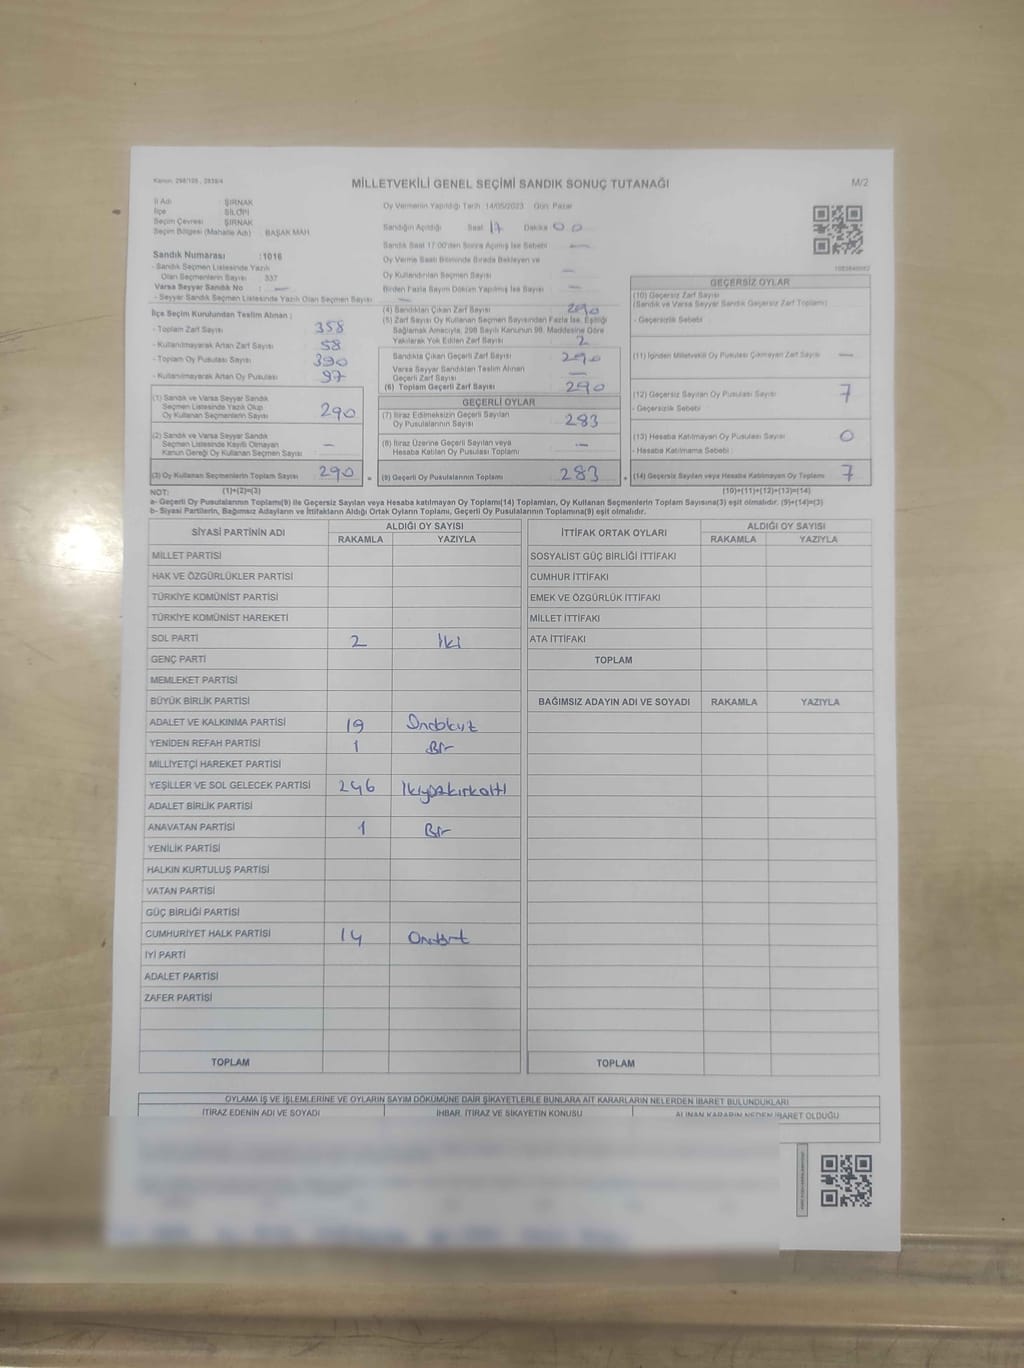 Kanun: 298/105, 2839/4
MİLLETVEKİLİ GENEL SEÇİMİ SANDIK SONUÇ TUTANAĞI
M/2
İl Adı ŞIRNAK
İlçe SİLOPİ
Seçim Çevresi ŞIRNAK
Seçim Bölgesi (Mahalle Adı) : BAŞAK MAH.
Oy Vermenin Yapıldığı Tarih :14/05/2023 Gün: Pazar
Sandığın Açıldığı Saat 17 Dakika 00
Sandık Saat 17:00'den Sonra Açılmış İse Sebebi —
Oy Verme Saati Bitiminde Sırada Bekleyen ve
Oy Kullandırılan Seçmen Sayısı —
Birden Fazla Sayım Döküm Yapılmış İse Sayısı —
Sandık Numarası :1016
- Sandık Seçmen Listesinde Yazılı
Olan Seçmenlerin Sayısı : 337
Varsa Seyyar Sandık No : —
- Seyyar Sandık Seçmen Listesinde Yazılı Olan Seçmen Sayısı : —
İlçe Seçim Kurulundan Teslim Alınan :
- Toplam Zarf Sayısı 358
- Kullanılmayarak Artan Zarf Sayısı 58
- Toplam Oy Pusulası Sayısı 390
- Kullanılmayarak Artan Oy Pusulası 97
(1) Sandık ve Varsa Seyyar Sandık
Seçmen Listesinde Yazılı Olup
Oy Kullanan Seçmenlerin Sayısı 290
(2) Sandık ve Varsa Seyyar Sandık
Seçmen Listesinde Kayıtlı Olmayan
Kanun Gereği Oy Kullanan Seçmen Sayısı —
(3) Oy Kullanan Seçmenlerin Toplam Sayısı 290
(4) Sandıktan Çıkan Zarf Sayısı 290
(5) Zarf Sayısı Oy Kullanan Seçmen Sayısından Fazla İse, Eşitliği
Sağlamak Amacıyla, 298 Sayılı Kanunun 98. Maddesine Göre
Yakılarak Yok Edilen Zarf Sayısı 2
Sandıkta Çıkan Geçerli Zarf Sayısı 290
Varsa Seyyar Sandıktan Teslim Alınan
Geçerli Zarf Sayısı —
(6) Toplam Geçerli Zarf Sayısı 290
GEÇERLİ OYLAR
(7) İtiraz Edilmeksizin Geçerli Sayılan
Oy Pusulalarının Sayısı 283
(8) İtiraz Üzerine Geçerli Sayılan veya
Hesaba Katılan Oy Pusulası Toplamı —
(9) Geçerli Oy Pusulalarının Toplamı 283
GEÇERSİZ OYLAR
(10) Geçersiz Zarf Sayısı
(Sandık ve Varsa Seyyar Sandık Geçersiz Zarf Toplamı)
- Geçersizlik Sebebi :
(11) İçinden Milletvekili Oy Pusulası Çıkmayan Zarf Sayısı —
(12) Geçersiz Sayılan Oy Pusulası Sayısı 7
- Geçersizlik Sebebi :
(13) Hesaba Katılmayan Oy Pusulası Sayısı 0
- Hesaba Katılmama Sebebi :
(14) Geçersiz Sayılan veya Hesaba Katılmayan Oy Toplamı 7
NOT: (1)+(2)=(3) (10)+(11)+(12)+(13)=(14)
a- Geçerli Oy Pusulalarının Toplamı(9) ile Geçersiz Sayılan veya Hesaba katılmayan Oy Toplamı(14) Toplamları, Oy Kullanan Seçmenlerin Toplam Sayısına(3) eşit olmalıdır. (9)+(14)=(3)
b- Siyasi Partilerin, Bağımsız Adayların ve İttifakların Aldığı Ortak Oyların Toplamı, Geçerli Oy Pusulalarının Toplamına(9) eşit olmalıdır.
SİYASİ PARTİNİN ADI ALDIĞI OY SAYISI
RAKAMLA YAZIYLA
MİLLET PARTİSİ
HAK VE ÖZGÜRLÜKLER PARTİSİ
TÜRKİYE KOMÜNİST PARTİSİ
TÜRKİYE KOMÜNİST HAREKETİ
SOL PARTİ 2 iki
GENÇ PARTİ
MEMLEKET PARTİSİ
BÜYÜK BİRLİK PARTİSİ
ADALET VE KALKINMA PARTİSİ 19 Ondokuz
YENİDEN REFAH PARTİSİ 1 Bir
MİLLİYETÇİ HAREKET PARTİSİ
YEŞİLLER VE SOL GELECEK PARTİSİ 246 ikiyüzkırkaltı
ADALET BİRLİK PARTİSİ
ANAVATAN PARTİSİ 1 Bir
YENİLİK PARTİSİ
HALKIN KURTULUŞ PARTİSİ
VATAN PARTİSİ
GÜÇ BİRLİĞİ PARTİSİ
CUMHURİYET HALK PARTİSİ 14 Ondört
İYİ PARTİ
ADALET PARTİSİ
ZAFER PARTİSİ
TOPLAM
İTTİFAK ORTAK OYLARI ALDIĞI OY SAYISI
RAKAMLA YAZIYLA
SOSYALİST GÜÇ BİRLİĞİ İTTİFAKI
CUMHUR İTTİFAKI
EMEK VE ÖZGÜRLÜK İTTİFAKI
MİLLET İTTİFAKI
ATA İTTİFAKI
TOPLAM
BAĞIMSIZ ADAYIN ADI VE SOYADI RAKAMLA YAZIYLA
TOPLAM
OYLAMA İŞ VE İŞLEMLERİNE VE OYLARIN SAYIM DÖKÜMÜNE DAİR ŞİKAYETLERLE BUNLARA AİT KARARLARIN NELERDEN İBARET BULUNDUKLARI
İTİRAZ EDENİN ADI VE SOYADI İHBAR, İTİRAZ VE ŞİKAYETİN KONUSU ALINAN KARARIN NEDEN İBARET OLDUĞU